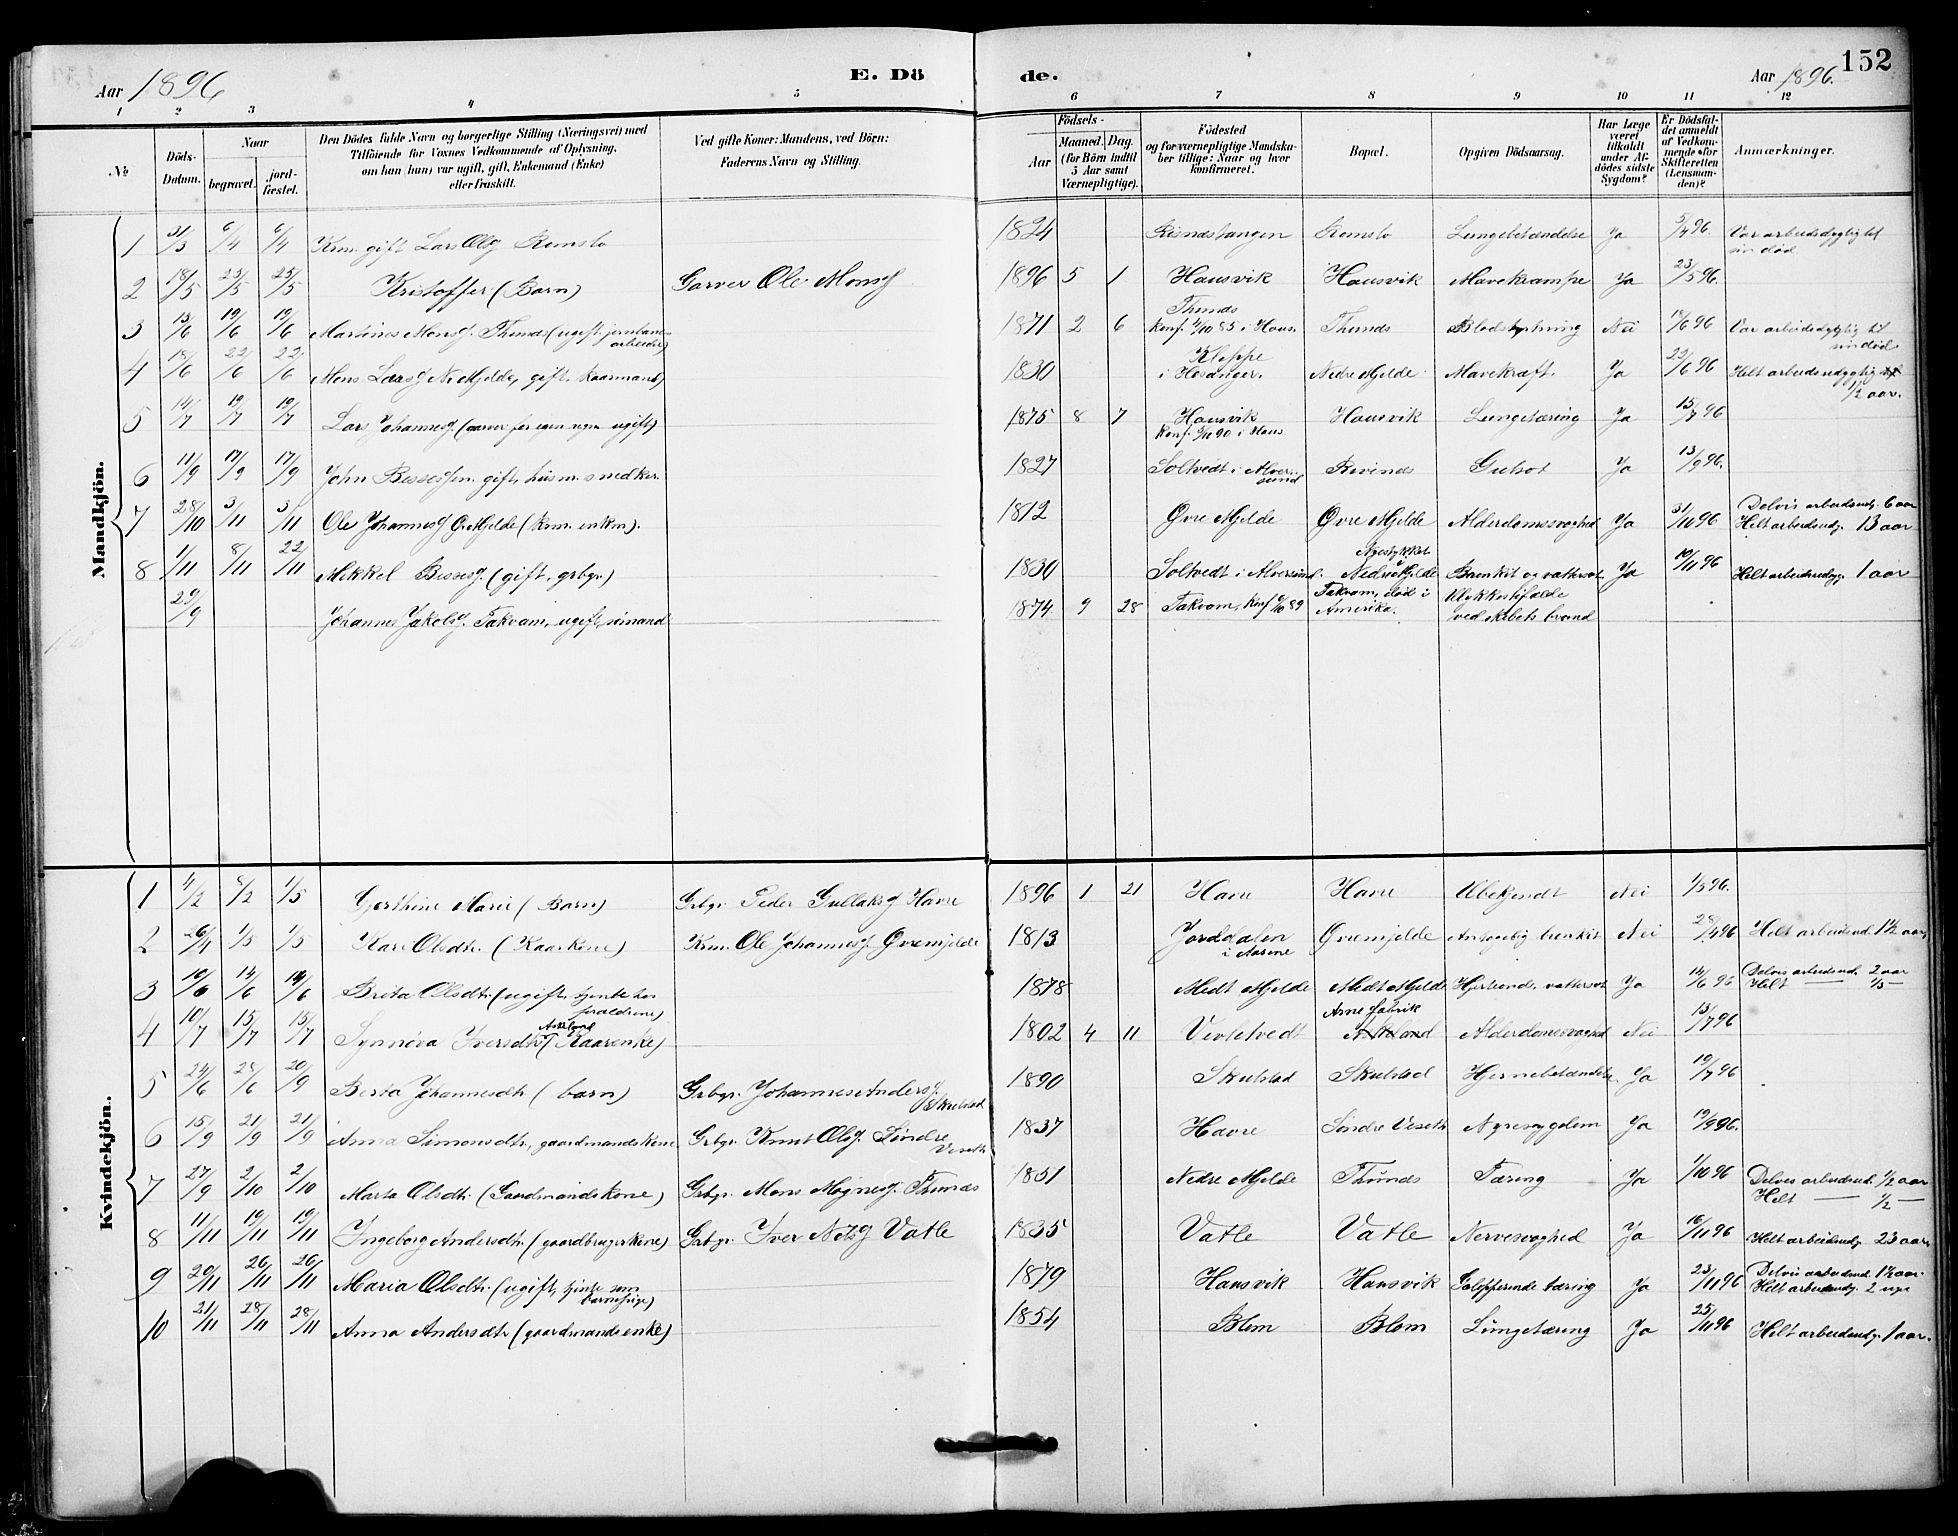 152
Aar 1896
E. Dö
de.
Aar 1896.
1 2 3 4 5 6 7 8 9 10 11 12
№
Döds-Datum.
Naar
begravet.
jordfæstet.
Den Dödes fulde Navn og borgerlige Stilling (Næringsvei) med
Tilföiende for Voxnes Vedkommende af Oplysning,
om han (hun) var ugift, gift, Enkemand (Enke)
eller fraskilt.
Ved gifte Koner: Mandens, ved Börn:
Faderens Navn og Stilling.
Födsels-
Aar
Maaned. Dag.
(for Börn indtil
5 Aar samt
Værnepligtige).
Födested
og for værnepligtige Mandska-
ber tillige: Naar og hvor
konfirmeret.
Bopæl.
Opgiven Dödsaarsag.
Har Læge
været
tilkaldt
under Af-
dödes sidste
Sygdom?
Er Dödsfal-
det anmeldt
af Vedkom-
mende for
Skifteretten
(Lensman-
den)?
Anmærkninger.
Mandkjön.
1 31/3 6/4 6/4 Krm. gift Lars Olsg Romslo 1824 Romslo Lungebetændelse Ja 96. Var arbeidsdygtig til
sin död
2 18/5 25/5 25/5 Kristoffer (Barn) Garver Ole Monsg 1896 5 1 Hausvik Hausvik Mavekrampe Ja 23/5 96.
3 13/6 19/6 19/6 Martines Monsg. Thunæs (ugift, jernbane-
arbeider) 1871 2 6 Thunæs
Konf. 4/10 85 i Haus. Thunæs Nei 96 Var arbeidsdygtig til
sin död.
4 22/6 22/6 Mons Larsg Ne Mjelde, gift, kaarmand) 1830 Kleppe
i Hosanger. Nedre Mjelde Mavekræft. Ja 22/6 96 Helt arbeidsudygtig
1/2 aar.
5 14/7 19/7 19/7 Lars Johannesg (ugift) 1875 8 7 Hausvik
Konf. 90 i Haus. Hausvik Lungetæring Ja 15/7 96
6 11/9 17/9 17/9 John gift, husm. snedker. 1827 Soltvedt i Alver-
sund Gulsot Ja 13/9 96.
7 28/10 3/11 3/11 Ole Johannesg Ö. Mjelde (krm. enkm). 1812 Øvre Mjelde Øvre Mjelde Alderdomssvaghed Ja 31/10 96 Delvis arbeidsud. 6 aar
Helt arbeidsudg. 13 aar
8 1/11 8/11 22/11 Mikkel (gift, grbgr.) 1830 Soltvedt i Alversund. Nedre Mjelde Bronkit og vattersot Ja 96 Helt arbeidsudyg. 1 aar
29/9 Johannes Jakobsg. Takvam, ugift, sömand 1874 9 28 Takvam, Konf 89 Takvam, död i
Amerika. Ulykkestilfælde
ved skibets brand
Kvindekjön.
1 4/2 8/2 1/5 Gjerthine Marie (Barn) Grbgr. Peder Gullaksg Havre 1896 1 21 Havre Havre Ubekjendt Nei 96.
2 26/4 1/5 1/5 Kari Olsdtr. (Kaarkone) Krm. Ole Johannesg. Øvremjelde 1813 Jorddalen Øvremjelde Antagelig bronkit Nei 28/4 96 Helt arbeidsud. 1 1/2 aar.
3 10/6 14/6 14/6 Brita Olsdtr. (ugift, tjente hos
forældrene) 1878 Midt Mjelde Midt Mjelde vattersot Ja 14/6 96 Delvis arbeidsud. 2 aar
Helt
4 10/7 15/7 15/7 Synnöva Iversdtr. Askland (Kaarenke) 1802 4 11 Arne fabrik
Askland Alderdomssvaghed Nei 15/7 96
5 24/6 28/6 20/9 Berta Johannesdtr. (barn) Grbgr. Johannes Andersg.
Skulstad 1890 Skulstad Skulstad Hjernebetændelse Ja 19/7 96
6 15/9 21/9 21/9 Anna Simonsdtr., gaardmandskone Grbgr. Knut Olsg. Söndre
Veseth 1837 Havre Söndre Veseth Nyresygdom Ja 19/9 96.
7 27/9 2/10 2/10 Marta Olsdtr. (Gaardmandskone) Grbgr. Mons Magnesg. Thunæs 1851 Nedre Mjelde Thunæs Tæring Ja 1/10 96 Delvis arbeidsud. 1/2 aar
Helt — 1/2 —
8 11/11 19/11 19/11 Ingeborg Andersdtr. (gaardbrugerkone) Grbgr. Iver Nilsg Vatle 1835 Vatle Vatle Nervesvaghed Ja 16/11 96 Helt arbeidsudg. 23 aar
9 20/11 26/11 26/11 Maria Olsdtr. (ugift, tjente som
barnepige) 1879 Hausvik Hausvik Galopperende tæring Ja 23/11 96 Delvis arbeidsud. 1 1/2 aar.
Helt arbeidsudg. 2 uger
10 21/11 28/11 28/11 Anna Andersdtr. (gaardmandsenke) 1854 Blom Blom Lungetæring Ja 25/11 96 Helt arbeidsudg. 1 aar.